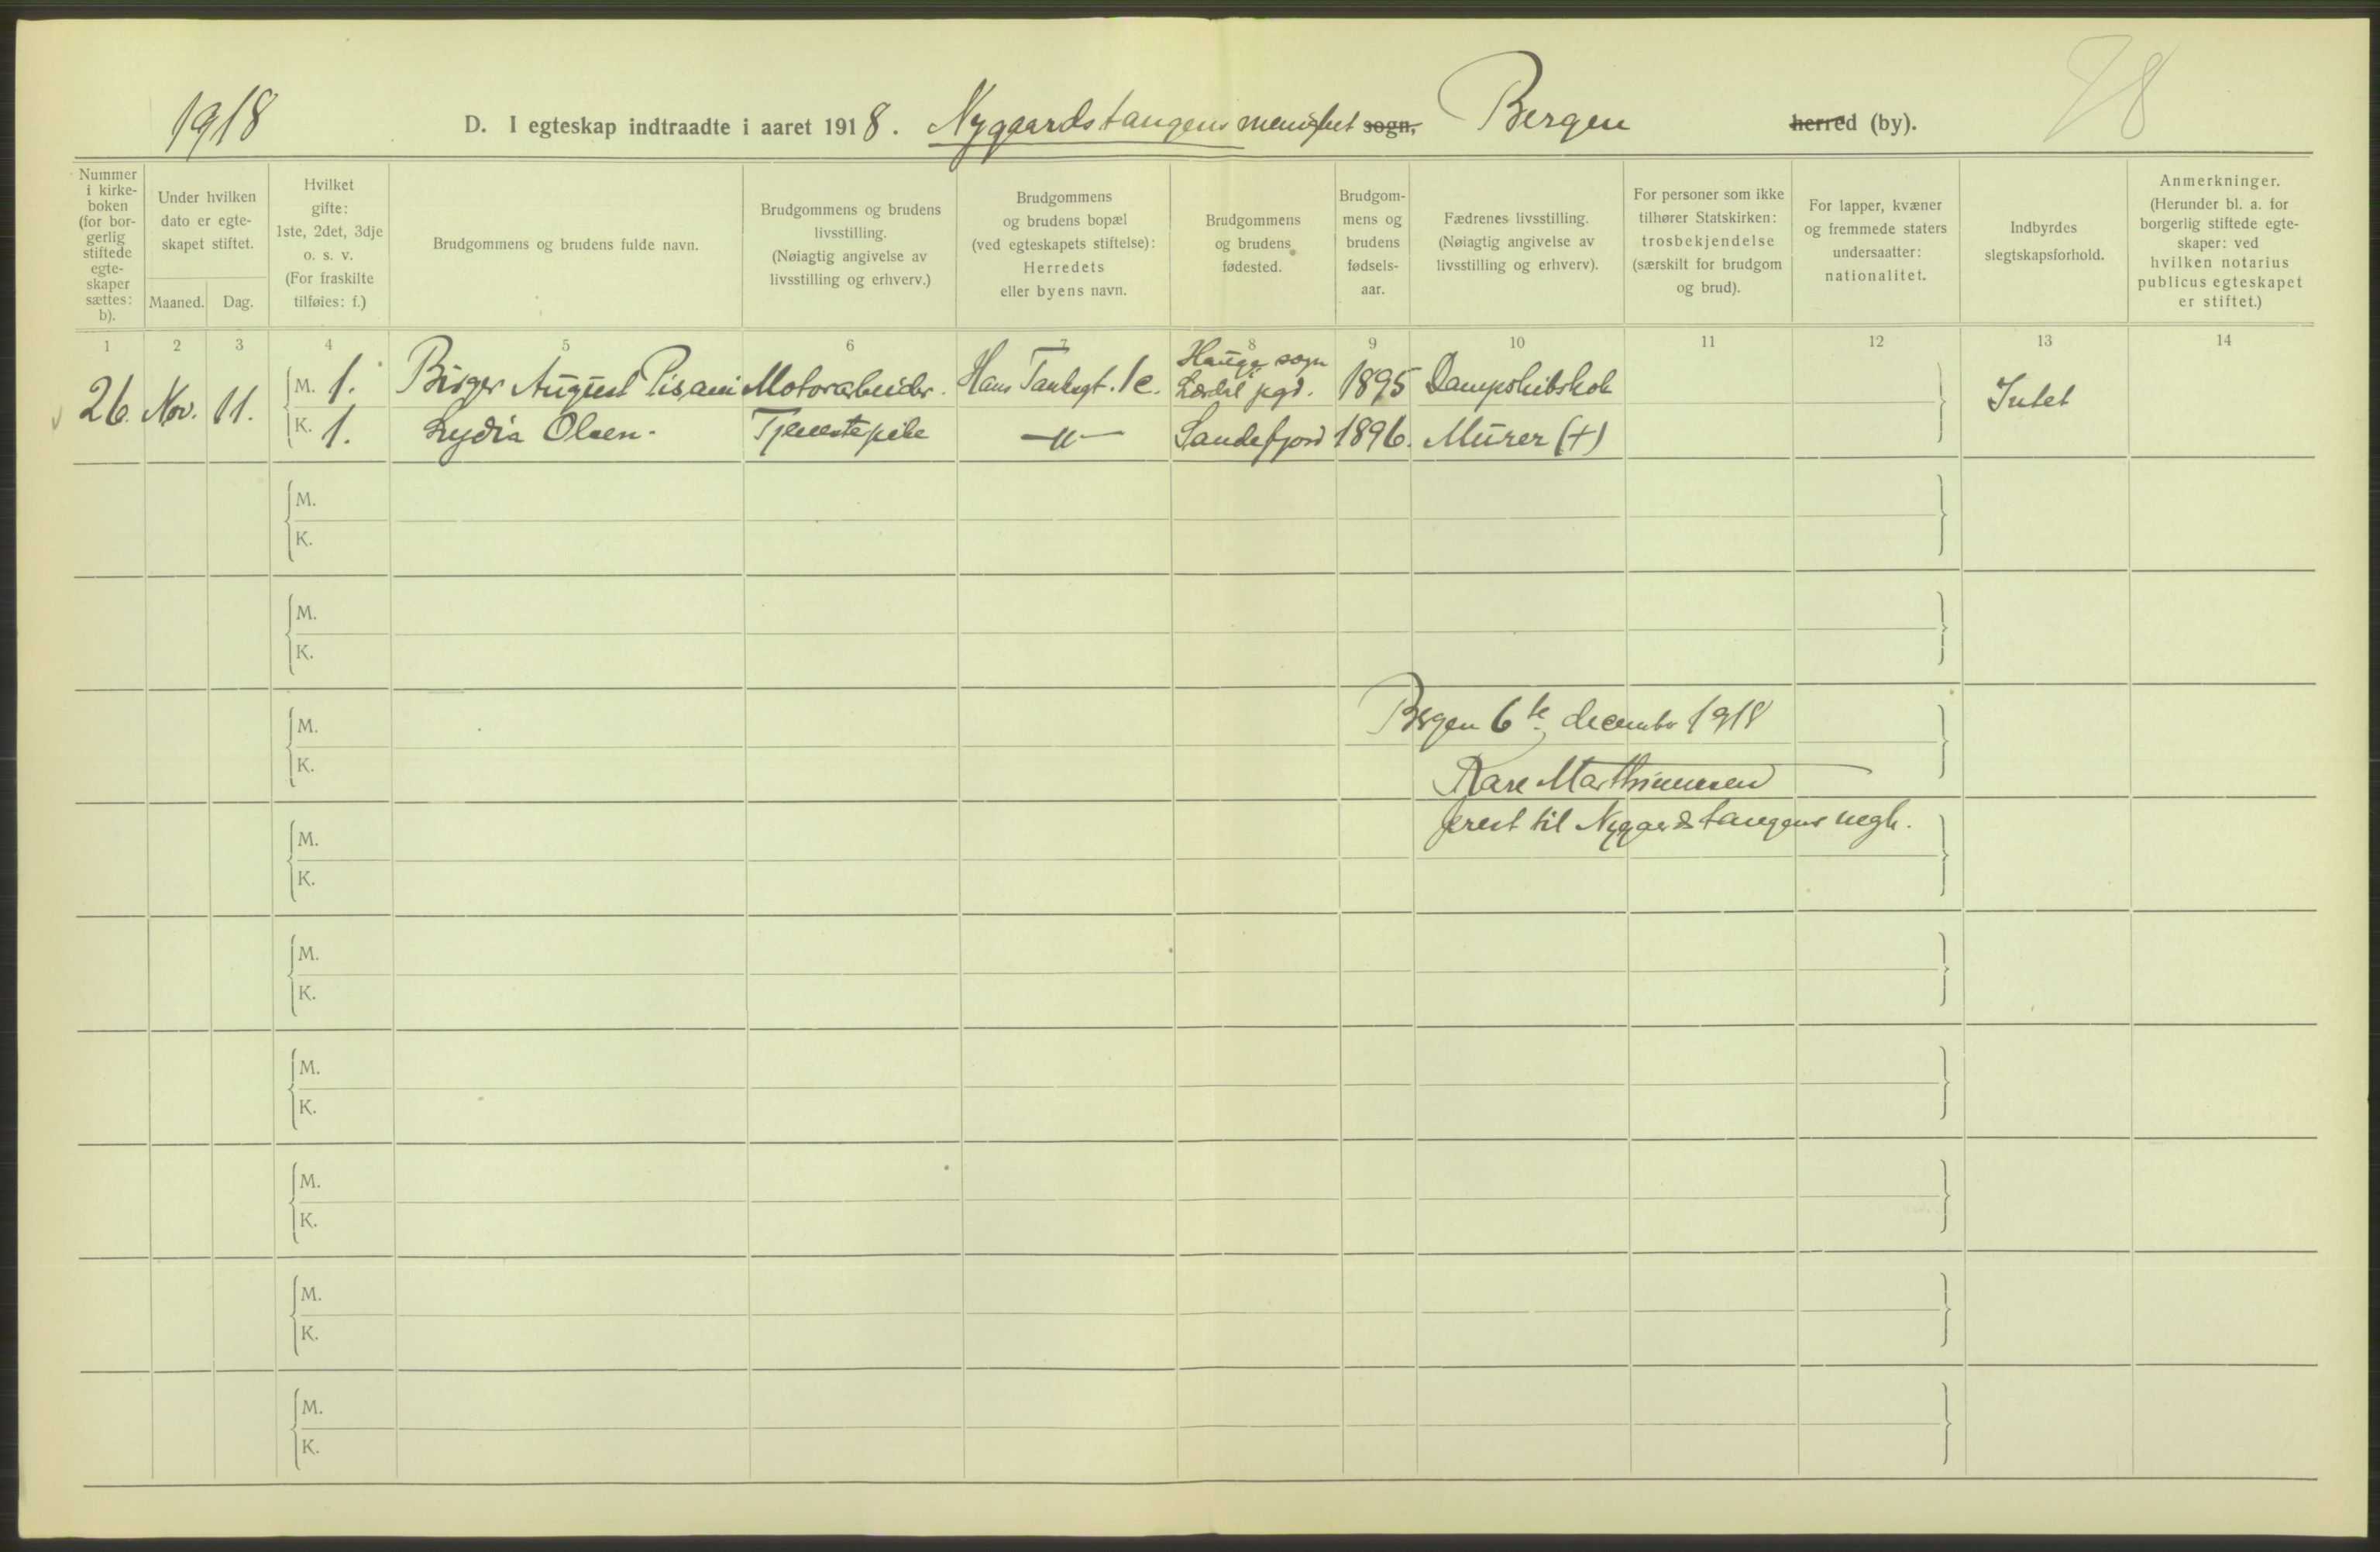 1918
D. I egteskap indtraadte i aaret 1918. Nygaardstangens menighet sogn, Bergen herred (by).
78
Nummer
i kirke-
boken
(for bor-
gerlig
stiftede
egte-
skaper
sættes:
b).
Under hvilken
dato er egte-
skapet stiftet.
Maaned.
Dag.
Hvilket
gifte:
1ste, 2det, 3dje
o. s. v.
(For fraskilte
tilføies: f.)
Brudgommens og brudens fulde navn.
Brudgommens og brudens
livsstilling.
(Nøiagtig angivelse av
livsstilling og erhverv.)
Brudgommens
og brudens bopæl
(ved egteskapets stiftelse):
Herredets
eller byens navn.
Brudgommens
og brudens
fødested.
Brudgom-
mens og
brudens
fødsels-
aar.
Fædrenes livsstilling.
(Nøiagtig angivelse av
livsstilling og erhverv).
For personer som ikke
tilhører Statskirken:
trosbekjendelse
(særskilt for brudgom
og brud).
For lapper, kvæner
og fremmede staters
undersaatter:
nationalitet.
Indbyrdes
slegtskapsforhold.
Anmerkninger.
(Herunder bl. a. for
borgerlig stiftede egte-
skaper: ved
hvilken notarius
publicus egteskapet
er stiftet.)
1 2 3 4 5 6 7 8 9 10 11 12 13 14
26. Nov. 11.
M. 1. Birger August Pisani Motorarbeider. Hans Tanksgt. 1c. Hauge sogn Lærdal pgd. 1895 Dampskibskok
K. 1. Lydia Olsen. Tjenestepike —"— Sandefjord 1896. Murer (+)
Intet
M.
K.
M.
K.
M.
K.
Bergen 6te december 1918
Aare Marthinussen
prest til Nygaardstangens mgh.
M.
K.
M.
K.
M.
K.
M.
K.
M.
K.
M.
K.